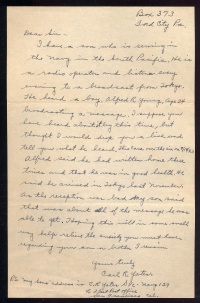 Box 373
Ford City Pa.
Dear Sir -
I have a son who is serving in
the Navy in the South Pacific. He is
a radio operator and listens every
evening to a broadcast from Tokyo.
He heard a boy, Alfred R. Young, Age 24
Broadcasting a message. I suppose you
have been identify this time, but
thought I would drop you a line and
tell you what he heard. This case was
Alfred said he had written home three
times and that he was in good health. He
said he arrived in Tokyo last November.
As the reception was bad my son said
that was about all of the message he was
able to get. Hoping this will in some small
way help relieve the anxiety you must have
regarding your son or brother, I remain
Yours truly
Earl R. Yates
P.S. My son's address is
Post Office
San Francisco, Cal.